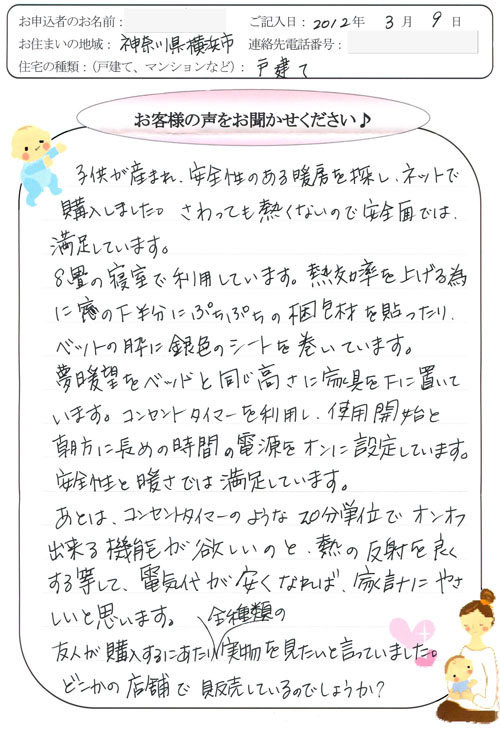 お申込者のお名前： ご記入日：2012年 3月 9日
お住まいの地域：神奈川県横浜市 連絡先電話番号：
住宅の種類：（戸建て、マンションなど）：戸建て
お客様の声をお聞かせください♪
子供が産まれ、安全性のある暖房を探し、ネットで
購入しました。さわっても熱くないので安全面では、
満足しています。
8畳の寝室で利用しています。熱効率を上げる為
に窓の下半分にぷちぷちの梱包材を貼ったり、
ベットの枠に銀色のシートを巻いています。
夢暖望をベッドと同じ高さに家具を下に置いて
います。コンセントタイマーを利用し、使用開始と
朝方に長めの時間の電源をオンに設定しています。
安全性と暖さでは満足しています。
あとは、コンセントタイマーのような20分単位でオンオフ
出来る機能が欲しいのと、熱の反射を良く
する等して、電気代が安くなれば、家計にやさ
しいと思います。
友人が購入するにあたり全種類の実物を見たいと言っていました。
どこかの店舗で販売しているのでしょうか？